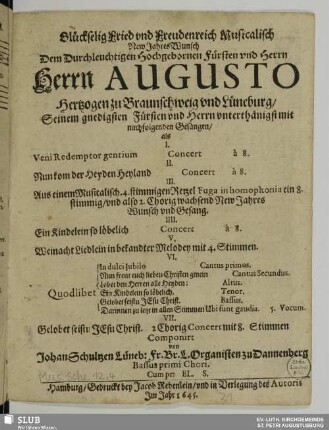 Glückselig Fried vnd Freudenreich Musicalisch
New Jahrs Wunsch
Dem Durchleuchtigen Hochgebornen Fürsten vnd Herrn
Herrn AUGUSTO
Hertzogen zu Braunschweig vnd Lüneburg/
Seinem gnedigsten Fürsten vnd Herrn vnterthänigst mit
nachfolgenden Gesängen/
als
I.
Veni Redemptor gentium Concert à 8.
II.
Nun kom der Heyden Heyland Concert à 8.
III.
Aus einem Musicalisch. 4. stimmigen Retzel Fuga in homophonia ein 8.
stimmig/ vnd also 2. Chorig wachsend New Jahres
Wunsch vnd Gesang.
IIII.
Ein Kindelein so löbelich Concert à 8.
V.
Weinacht Liedlein in bekandter Melodey mit 4. Stimmen.
VI.
Quodlibet
In dulci Jubilo Cantus primus.
Nun freut euch lieben Christen gmein Cantus Secundus.
Lobet den Herren alle Heyden: Altus.
Ein Kindelein so löbelich. Tenor.
Gelobet seistu JEsu Christ. Bassus.
Darinnen zu letzt in allen Stimmen Ubi sunt gaudia. 5. Vocum.
VII.
Gelobet seistu JEsu Christ. 2 Chorig Concert mit 8. Stimmen
Componirt
von
Johan Schultzen Lüneb: Fr. Br. L. Organisten zu Dannenberg
Bassus primi Chori.
Cum pr: EL. S.
Hamburg/ Gedruckt bey Jacob Rebenlein/ vnd in Verlegung des Autoris
Im Jahr 1645.
SLUB
Wir führen Wissen.
EV.-LUTH. KIRCHGEMEINDE
ST. PETRI AUGUSTUSBURG